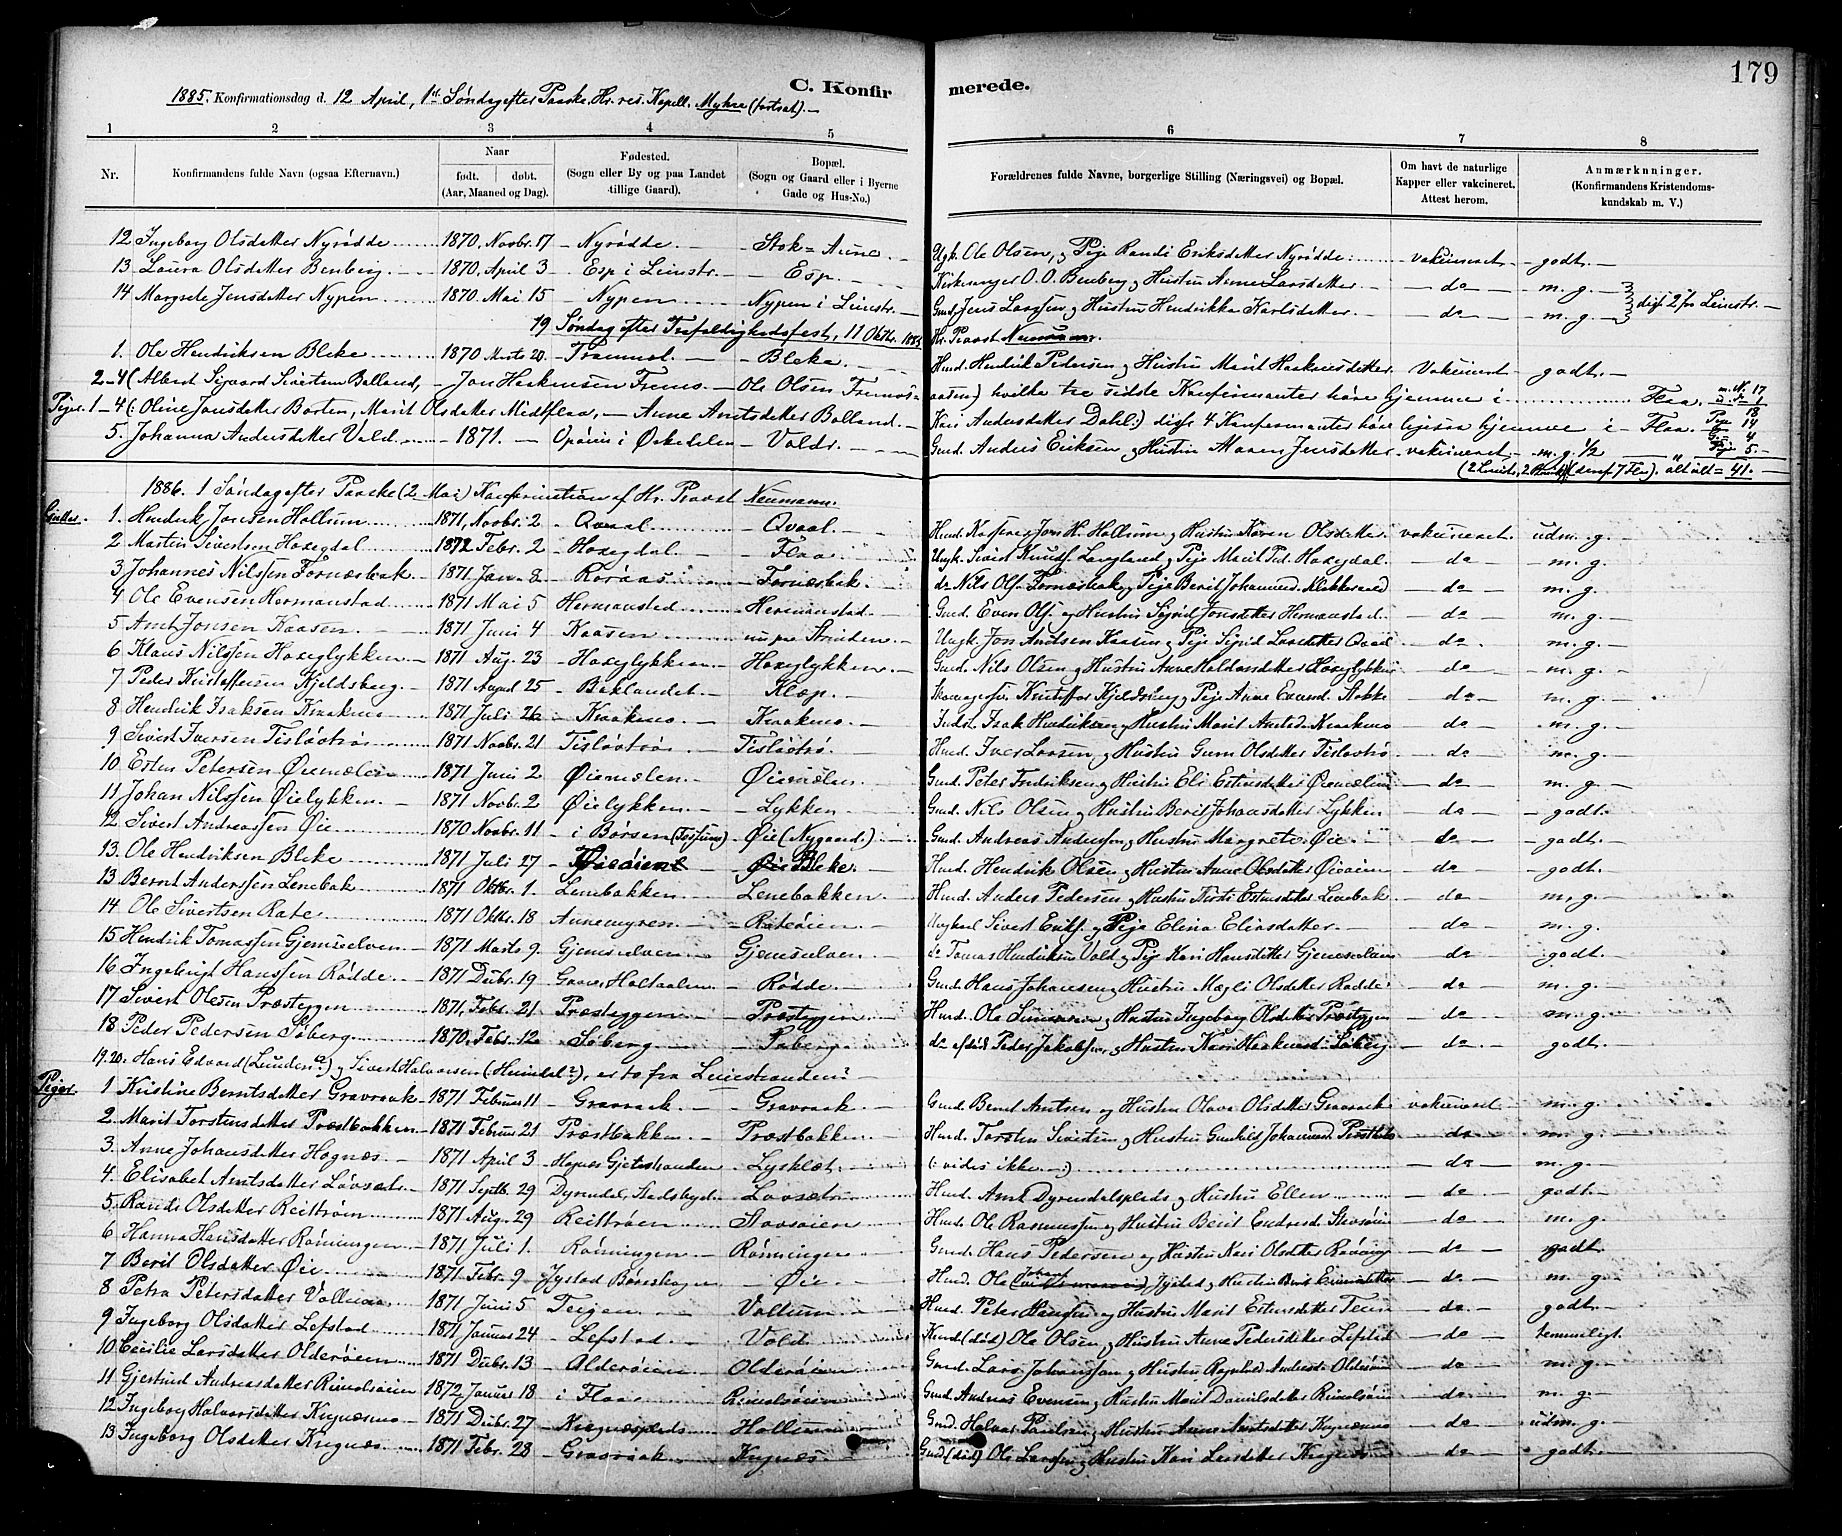 179
C. Konfirmerede.
1885. Konfirmationsdag d. 12 April, 1st Søndag efter Paaske. Hr. res. Kapell. Myhre (fortsat). —
1 2 3 4 5 6 7 8
Nr. Konfirmandens fulde Navn (ogsaa Efternavn.) Naar født. døbt. (Aar, Maaned og Dag). Fødested. (Sogn eller By og paa Landet tillige Gaard). Bopæl. (Sogn og Gaard eller i Byerne Gade og Hus-No.) Forældrenes fulde Navne, borgerlige Stilling (Næringsvei) og Bopæl. Om havt de naturlige Kapper eller vakcineret. Attest herom. Anmærkninger. (Konfirmandens Kristendoms-kundskab m. V.)
12 Ingeborg Olsdatter Nyrødde 1870. Novbr. 17 Nyrødde. Stok-Aune Ugk. Ole Olsen, og Pige Randi Eriksdatter Nyrødde. vakcineret godt.
13 Laura Olsdatter Benberg. 1870. April 3 Esp i Leinstr. Esp. Kirkesanger O. O. Benberg og Hustru Anne Larsdatter do m. g.
14 Margrete Jensdatter Nypen 1870. Mai 15 Nypen Nypen i Leinstr. Gmd. Jens Larssen og Hustru Hendrikka Karlsdatter. do m. g. disse 2 fra Leinstr.
19 Søndag efter Trefoldighedsfest, 11 Oktbr. 1885 Hr. Provst Neumann.
1. Ole Hendriksen Bleke 1870 Marts 20 Bleka Hmd. Hendrik Pedersen og Hustru Marit Haaknsdatter Vakcineret godt.
2–4 (Albert Sivertsen Bolland, Jon Haaknsen Fremo. Ole Olsen Fremos-aasen) hvilke tre sidste Konfirmanter høre hjemme i Flaa.
Piger. 1–4 (: Oline Jonsdatter Borten, Marit Olsdatter Midtflaa, Anne Arntsdatter Bolland. Kari Andersdatter Dahl:) disse 4 Konfirmanter høre ligesaa hjemme i Flaa.
5. Johanna Andersdatter Vold 1871. Voldr. Gmd. Anders Eriksen og Hustru Maren Jensdatter vakcineret m. g. ½
alt ialt = 41.
1886. 1 Søndag efter Paaske (2 Mai) Konfirmation af Hr. Provst Neumann.
Gutter. 1. Hendrik Jonsen Hollum 1871, Novbr. 2 Qvaal Qvaal Jon H. Hollum og Hustru Karen Olsdatter vakcineret udm. g.
2 Martin Sivertsen Haxegdal 1872 Febr. 2 Haxegdal Flaa Ungk. Sivert Knuds. Langland og Pige Marit Ped. Haxegdal do m. g.
3 Johannes Nilssen Fornæsbak 1871 Jan. 8 Roraas Fornæsbak. do Nils Ols. Fornæsbak og Pige Berit Johannesd. do m. g.
4 Ole Evensen Hermanstad 1871 Mai 5 Hermanstad Hermanstad Gmd. Even Ols. og Hustru Sigrid Jonsdatter Hermanstad. do m. g.
5 Arnt Jonsen Kaasen 1871 Juni 4 Kaasen Ungk. Jon Arntsen Kaasen og Pige Sigrid Larsdatter Qvaal do m. g.
6 Klaus Nilssen Haxeglykken 1871 Aug. 23 Haxeglykken Haxeglykken. Gmd. Nils Olsen og Hustru Anne Haldorsdatter Haxeglykken do m. g.
7 Peder Kristoffersen Kjeldsberg. 1871 August 25 Baklandet. Klæp. Kristoffer Kjeldsberg og Pige Anne Evensd. Stokke do m. g.
8 Hendrik Isaksen Kraakmo 1871 Juli 26 Kraakmo. Kraakmo. Inds. Isak Hendriksen og Hustru Marit Arntsd. Kraakmo do m. g.
9 Sivert Iversen Tisløstrø 1871 Novbr. 21 Tisløstrø Tisløstrø. Hmd. Iver Larsen og Hustru Guru Olsdatter Tisløstrø do m. g.
10 Esten Petersen Øiemælen 1871 Juni 2 Øiemælen. Øiemælen. Gmd. Peter Fredriksen og Hustru Eli Estensdatter Øiemælen do m. g.
11 Johan Nilssen Øielykken. 1871 Novbr. 2 Øielykken Lykken Gmd. Nils Olsen og Hustru Berit Johansdatter Lykken do godt.
12 Sivert Andreassen Øie 1870 Novbr. 11 i Børsen Øie (Nygaard.) Gmd. Andreas Anderssen og Hustru Margrete Øie. do godt.
13. Ole Hendriksen Bleke 1871 Juli 27 Øieøiene Bleke. Hmd. Hendrik Olsen og Hustru Anne Olsdatter Øieøien do godt.
13 Bernt Anderssen Lenebak 1871 Oktbr. 1 Lenebakken Lenebakken Hmd. Anders Pedersen og Hustru Estensdatter Lenebak do m. g.
14 Ole Sivertsen Rate 1871 Oktbr. 18 Aunemyren. Raterøien Ungkarl Sivert Eriks. og Pige Elena Eliasdatter do m. g.
15 Hendrik Tomassen Gjemselven 1871 Marts 9 Gjemselven Gjemselven do Tomas Hendriksen Vold og Pige Kari Hansdatter Gjemselven do godt.
16 Ingebrigt Hanssen Rødde 1871 Decbr. 19 Holtaalen Rødde. Gmd. Hans Johansen og Hustru Magli Olsdatter Rødde do m. g.
17 Sivert Olsen Præsteggen 1871, Febr. 21 Præsteggen Præsteggen Hmd. Ole Simonsen og Hustru Ingeborg Olsdatter Præsteggen do m. g.
18 Peder Pedersen Søberg 1870. Febr. 12 Søberg Søberg do Peder Jakobsen og Hustru Kari Haaknsd. Søberg do godt.
19.20. Hans Edvard (Lunden?) og Sivert Halvorsen (Heimdal?), er to fra Leinstranden?
Piger. 1 Kristine Berntsdatter Gravraak 1871 Februar 11 Gravraak. Gravraak. Gmd. Bernt Arntsen og Hustru Olava Olsdatter Gravraak vakcineret m. g.
2. Marit Torstensdatter Præstbakken 1871 Februar 21 Præstbakken Præstbakken Hmd. Torsten Sivertsen og Hustru Gunhild Johannesd. do m. g.
3. Anne Johansdatter Hognæs. 1871 April 3 Hognæs Gjetestranden Lysklæt. (: vides ikke :) do m. g.
4. Elisabet Arntsdatter Løvsætr. 1871 Septb. 29 Dyrendal, Stadsbygd Løvsætr Hmd. Arnt Dyrendalspleds og Hustru Ellen do godt.
5. Randi Olsdatter Reitrøen 1871 Aug. 29 Reitrøen Stavsøien Hmd. Ole Rasmussen og Hustru Berit Endresd. Stavsøien do m. g.
6 Hanna Hansdatter Rønningen 1871 Juli 1. Rønningen Rønningen Gmd. Hans Pedersen og Hustru Kari Olsdatter Rønning do godt.
7 Berit Olsdatter Øie 1871 Febr. 9 Jystad Børseskogn Øie Hmd. Ole Jystad og Hustru Berit do m. g.
8 Petra Petersdatter Vollum 1871 Juni 5 Teigen Vollum Hmd. Peter Hanssen og Hustru Marit Estensdatter do godt.
9 Ingeborg Olsdatter Lefstad 1871 Januar 24 Lefstad Vold (død) Ole Olsen og Hustru Anne Pedersdatter Lefstad do temmeligt.
10 Cecilie Larsdatter Olderøien 1871 Decbr. 13 Olderøien Olderøien Gmd. Lars Johanssen og Hustru Ragnhild Andersd. Olderøien do m. g.
11 Gjertrud Andreasdatter Rimolsøien 1872 Januar 18 i Flaa Rimolsøien Gmd. Andreas Evensen og Hustru Marit Danielsdatter Rimolsøien do m. g.
12 Ingeborg Halvorsdatter Kregnæsmo 1871 Decbr. 27 Kregnæspleds Hollum Gmd. Halvor Paulsen og Hustru Anne Arntsdatter Kregnæsmo do udm. g.
13 Ingeborg Olsdatter Kregnæs 1871 Febr. 28 Gravraak Kregnæs Gmd (død) Ole Larssen og Hustru Kari Larsdatter Kregnæs do godt.